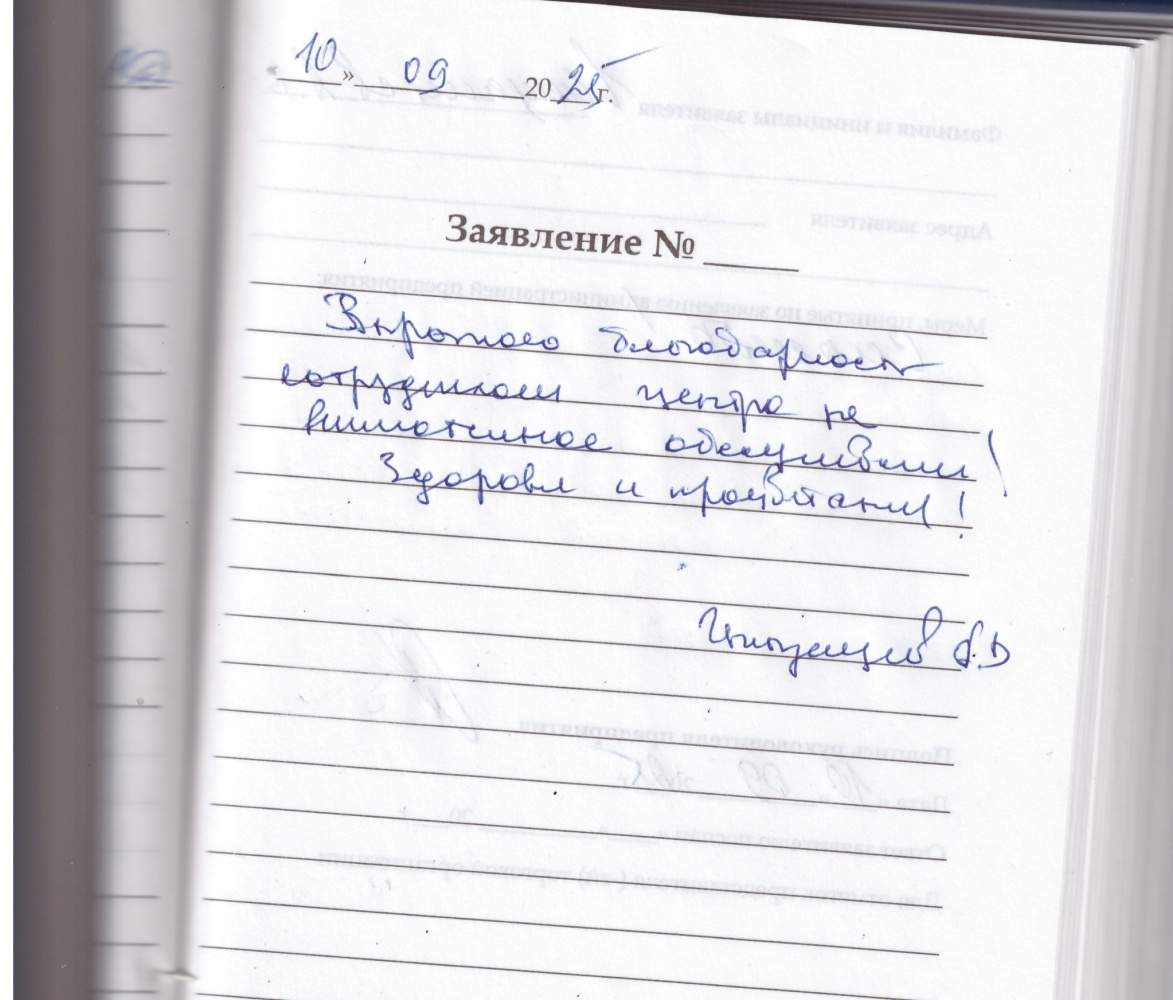 «10» 09 2025 г.
Заявление № ____
Выражаю благодарность
сотрудникам центра за
внимательное обслуживание!
Здоровья и процветания!